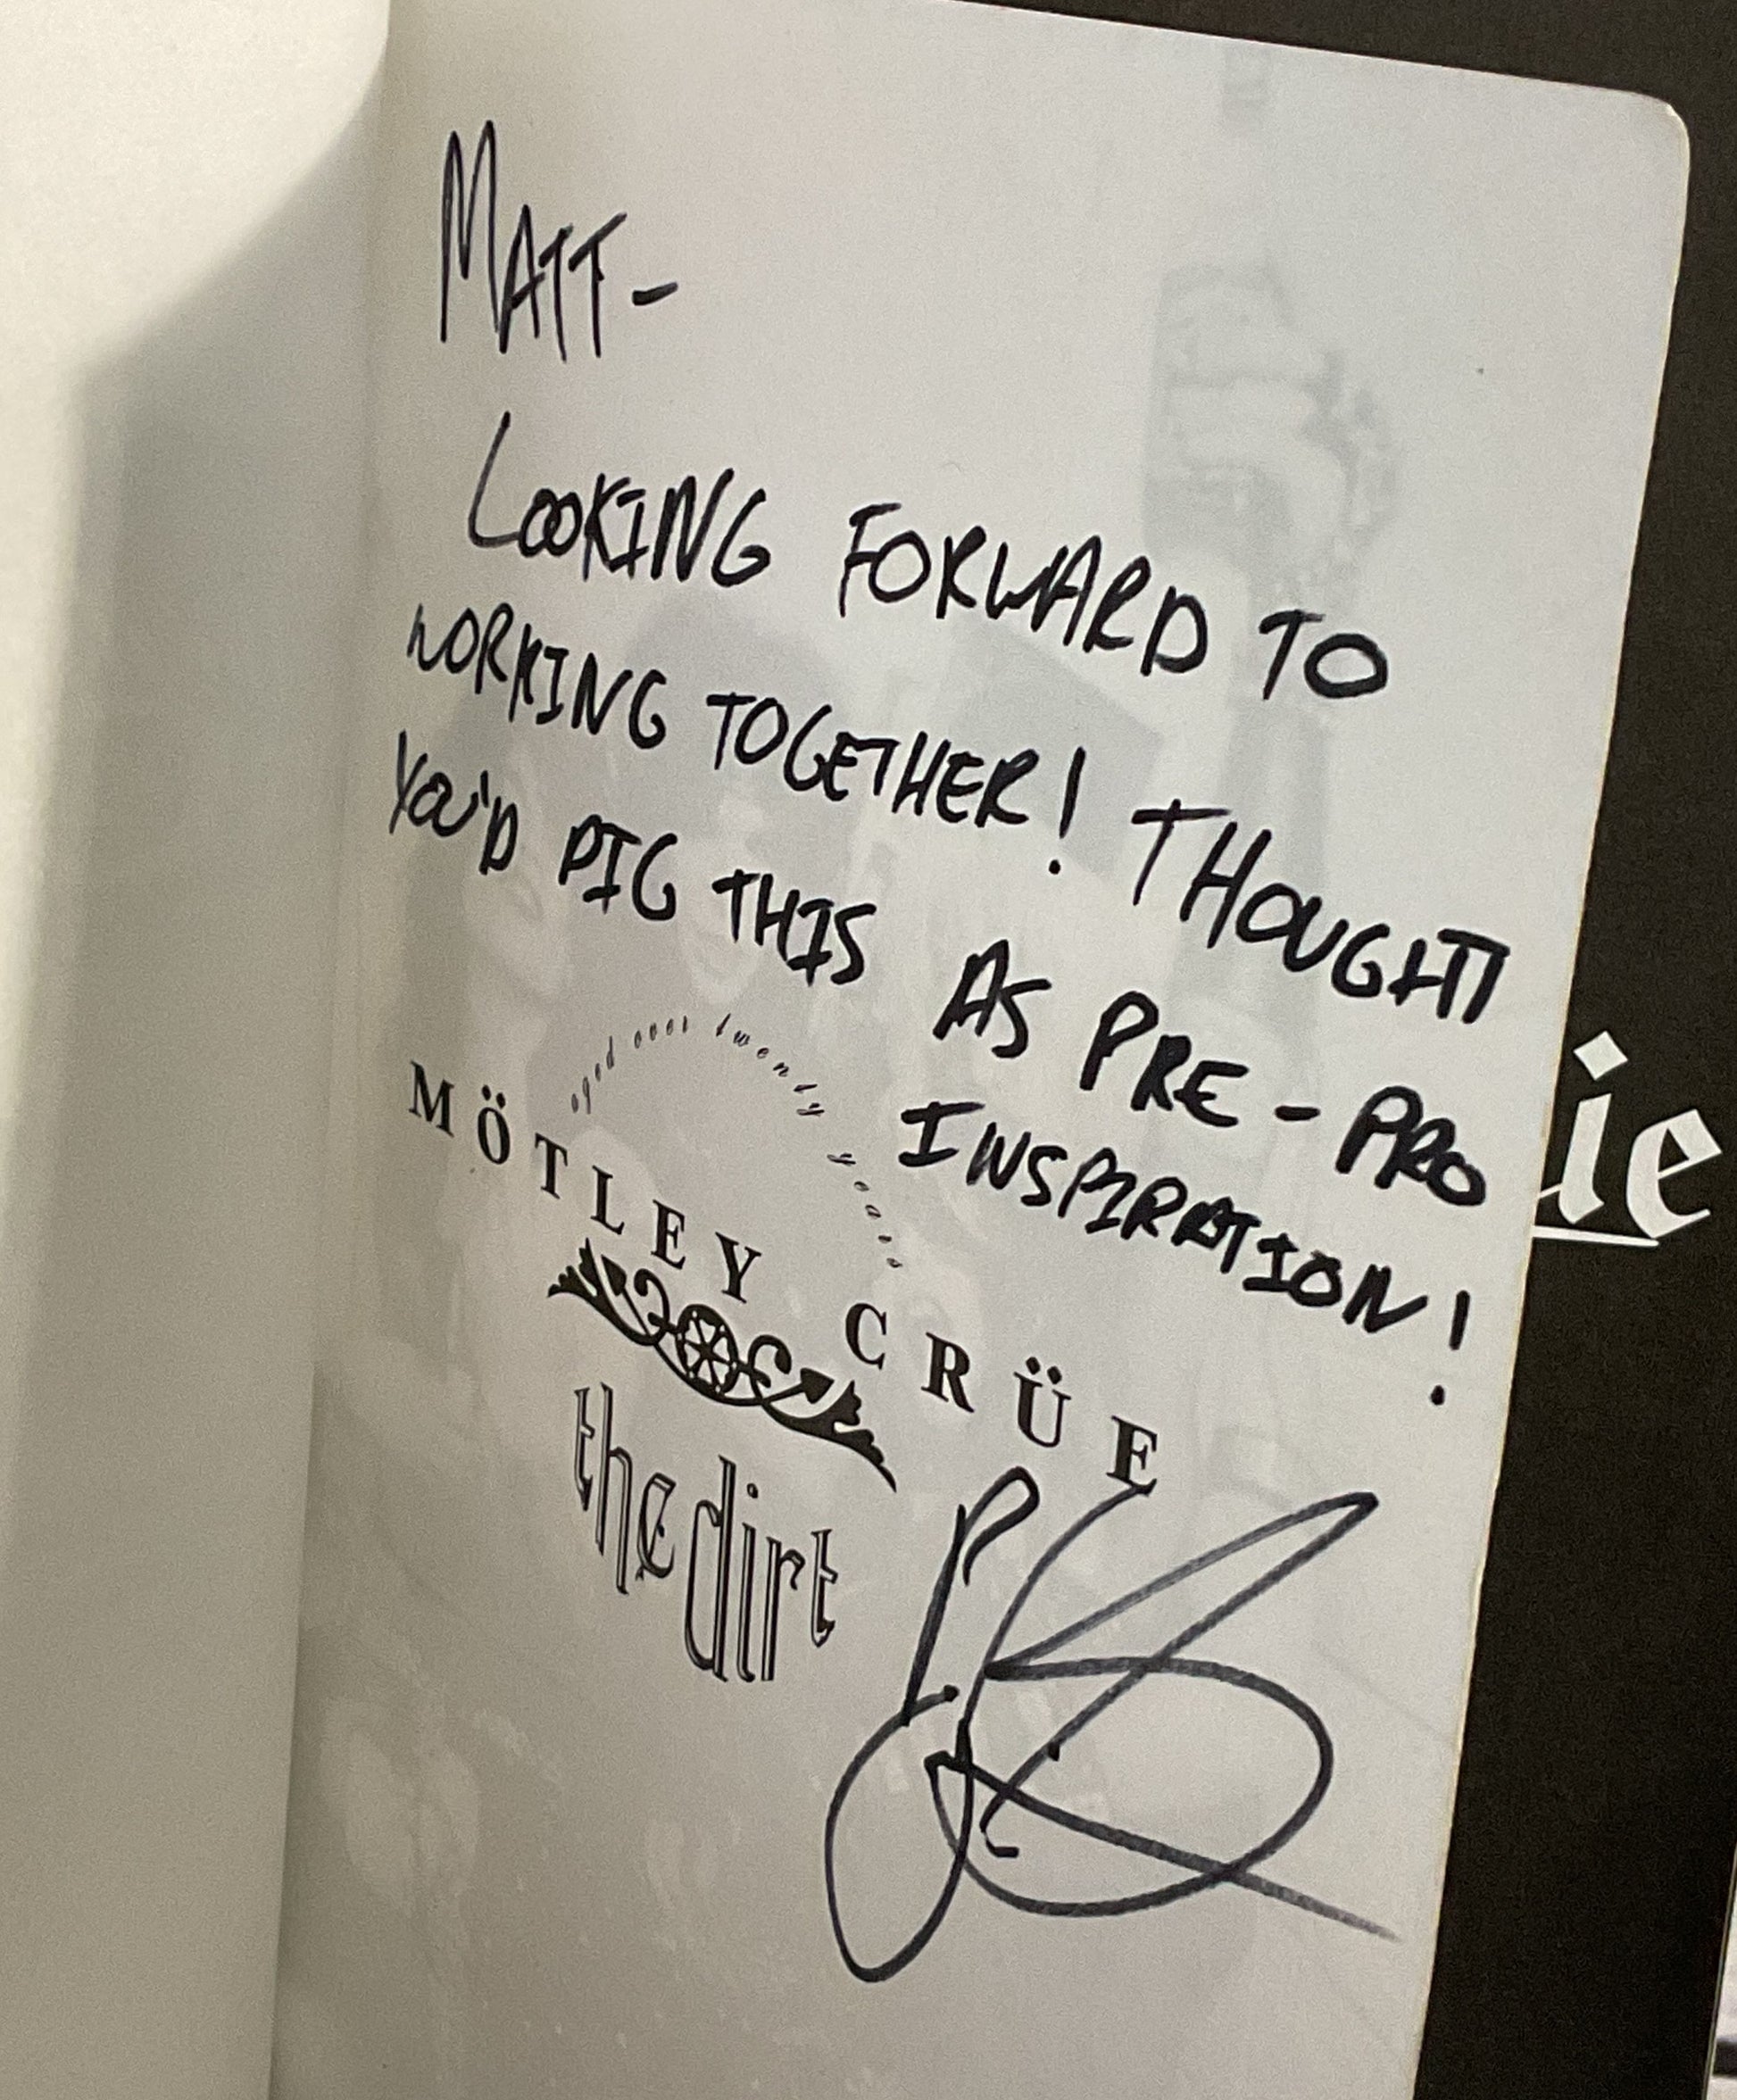 MATT-
LOOKING FORWARD TO
WORKING TOGETHER! THOUGHT
YOU'D DIG THIS AS PRE-PRO
INSPIRATION!
aged over twenty years
MÖTLEY CRÜE
the dirt
ie